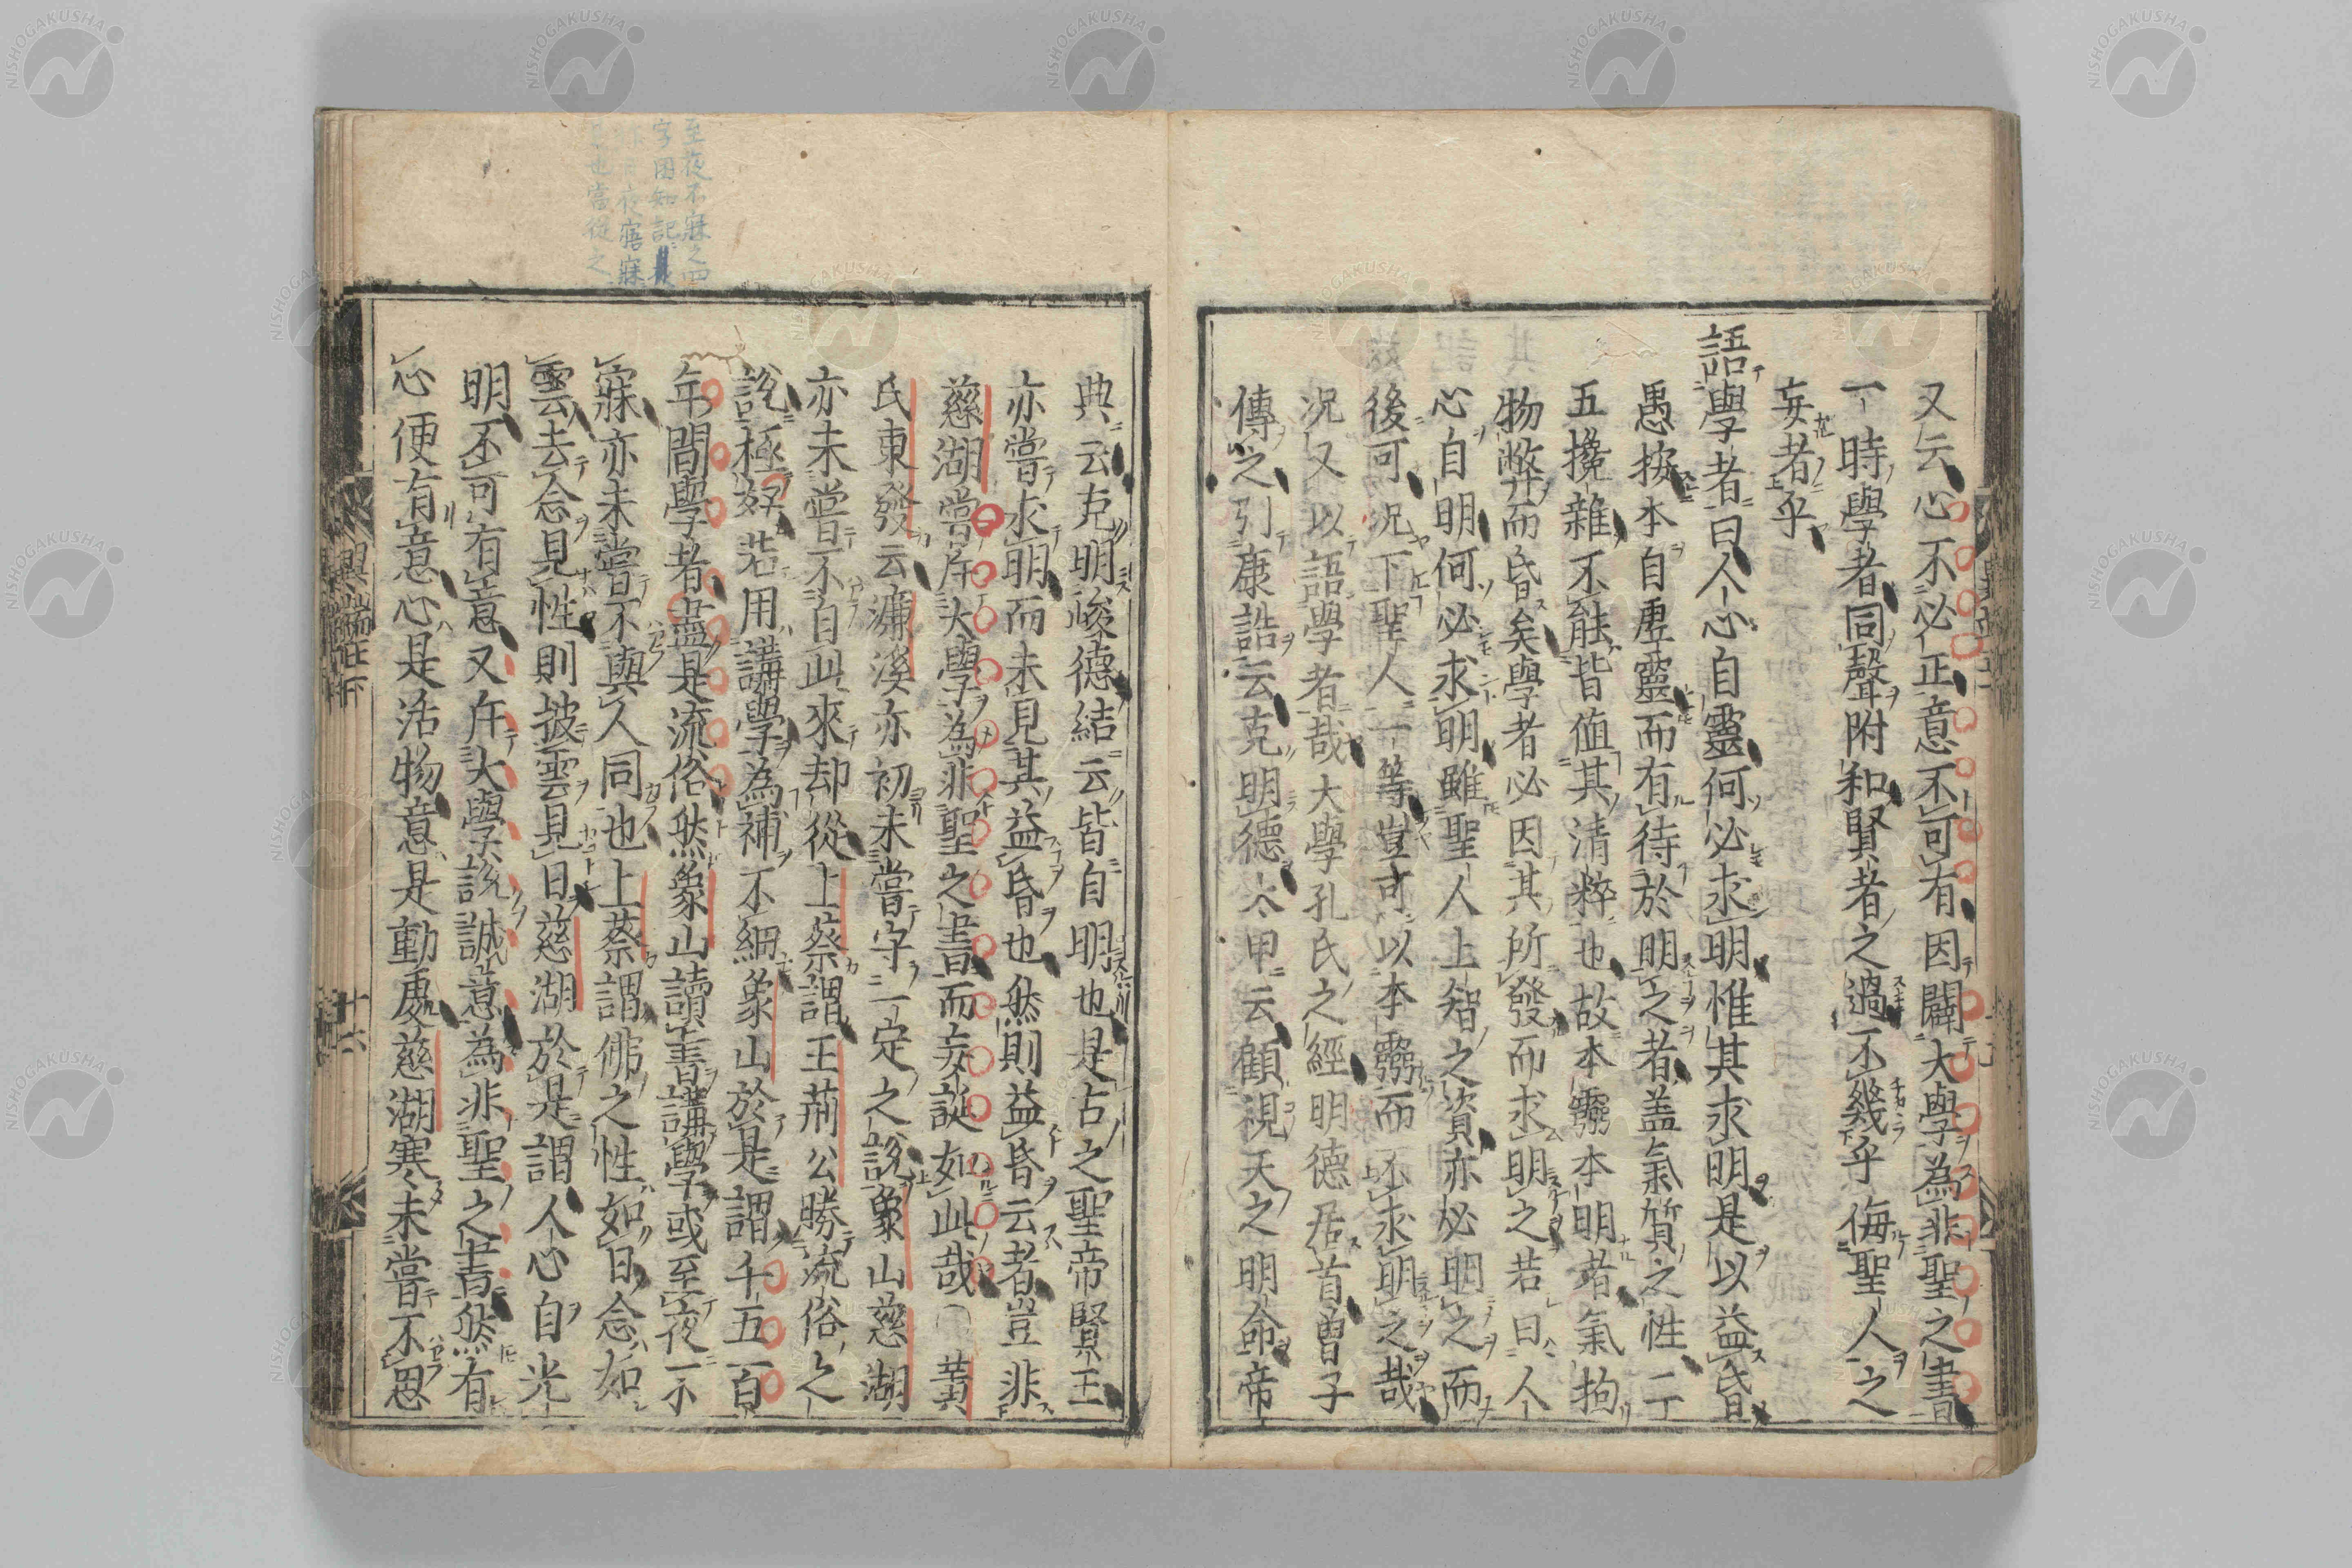 又云心不必正意不可有因闢大學為非聖之書
一時學者同聲附和賢者之過不幾乎侮聖人之
妄者乎
語學者曰人心自靈何必求明惟其求明是以益昏
愚按本自虛靈而有待於明之者盖氣質之性二
五攙雜不能皆值其清粹也故本靈本明者氣拘
物弊而昏矣學者必因其所發而求明之若曰人
心自明何必求明雖聖人上智之資亦必明之而
後可況下聖人一等豈可以本靈而不求明之哉
況又以語學者哉大學孔氏之經明德居首曽子
傳之引康誥云克明德太甲云顧視天之明命帝
典云克明峻德結云皆自明也是古之聖帝賢王
亦嘗求明而未見其益昏也然則益昏云者豈非
慈湖嘗斥大學為非聖之書而妄誕如此哉 黄
氏東發云濂溪亦初未嘗字二一定之說象山慈湖
亦未嘗不自此來却從上蔡謂王荊公勝流俗之
說極好若用講學為補不細象山於是謂千五百
年間學者盡是流俗然象山讀書講學或至夜一不
寐亦未嘗不與人同也上蔡謂佛之性如日念如
雲去念見性則披雲見日慈湖於是謂人心自光
明不可有意又斥大學說誠意為非聖之書然有
心便有意心是活物意是動處慈湖寒未嘗不思
異端正
十六
至夜不寐之四
字困知記
昨日夜寤寐
也當從之
NISHOGAKUSHA